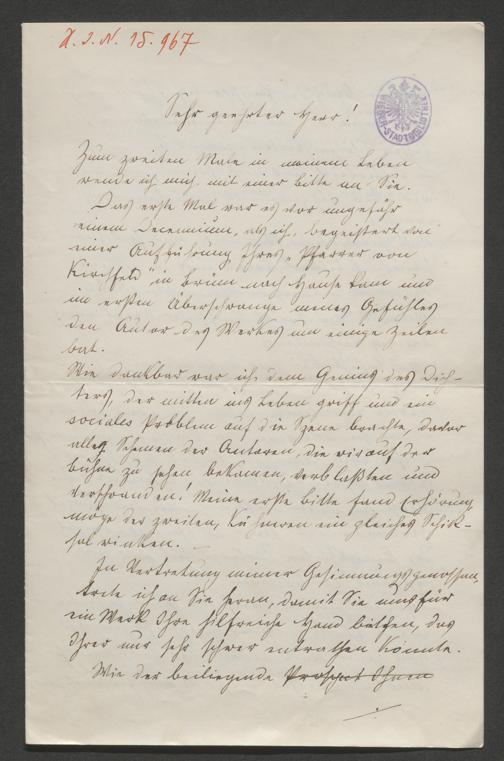 H. I. N. 15.967
WIENER STADTBIBLIOTHEK
Sehr geehrter Herr!
Zum zweiten Male in meinem Leben
wende ich mich mit einer bitte an Sie.
Das erste Mal war es vor ungefähr
einem Decennium, als ich, begeistert von
einer Aufführung Ihres „Pfarrer von
Kirchfeld" in Brünn nach Hause kam und
im ersten Überschwange meines Gefühles
den Autor des Werkes um einige Zeilen
bat.
Wie dankbar war ich dem Genius des Dich-
ters, der mitten ins Leben griff und ein
sociales Problem auf die Szene brachte, davor
alle Schemen der Autoren, die wir auf der
bühne zu sehen bekamen, verblaßten und
verschwanden! Meine erste bitte fand Erhörung,
möge der zweiten, kühneren ein gleiches Schick-
sal winken.
In Vertretung meiner Gesinnungsgenossen
trete ich an Sie heran, damit Sie uns für
ein Werk Ihre hilfreiche Hand bieten, das
Ihrer nur sehr schwer entrathen könnte.
Wie der beiliegende Prospect Ihnen